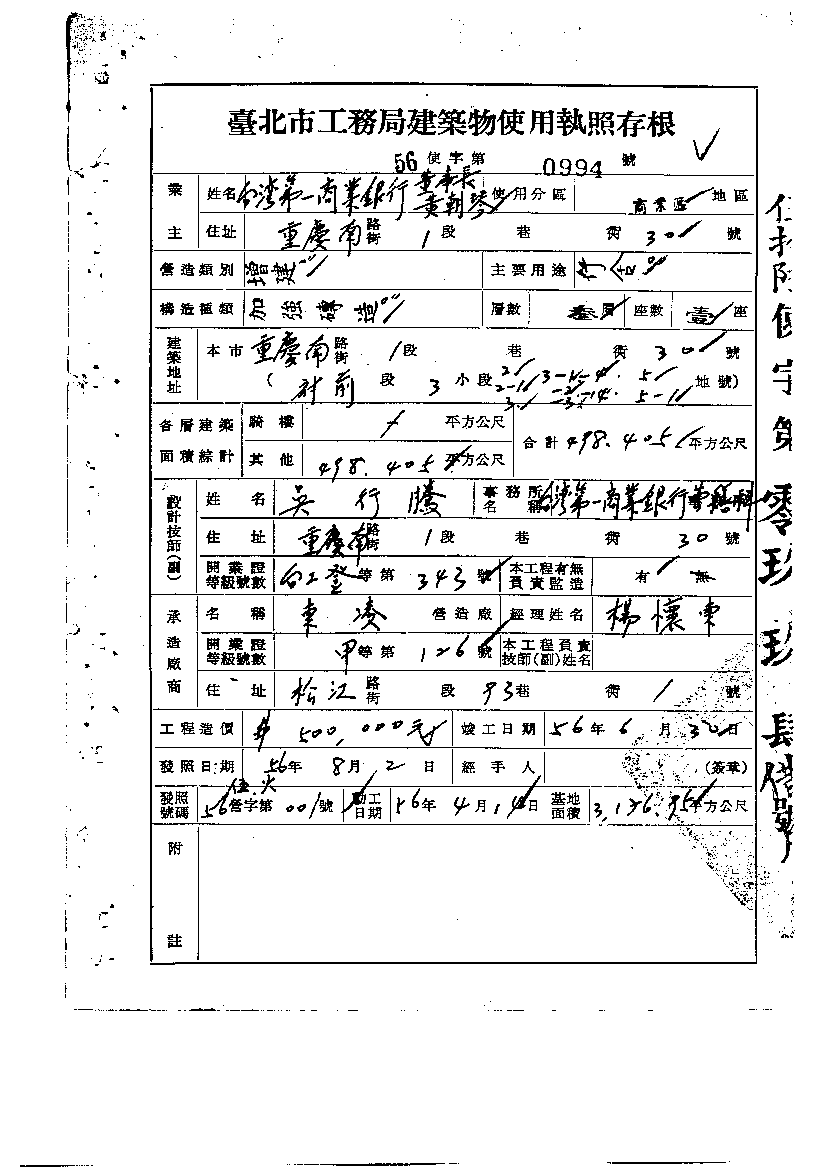 臺北市工務局建築物使用執照存根
56 使字第 0994 號
業主 姓名 台灣第一商業銀行 董事長 黃朝琴 使用分區 商業區 地區
住址 重慶南 路街 1 段 巷 衖 30 號
營造類別 增建 主要用途 行舍
構造種類 加強磚造 層數 叁層 座數 壹座
建築地址 本市 重慶南 路街 1 段 巷 衖 30 號
( 段 3 小段 地號)
各層建築面積綜計 騎樓 平方公尺 合計 498.405 平方公尺
其他 498.405 平方公尺
設計技師(副) 姓名 吳行騰 事務所名稱 台灣第一商業銀行
住址 重慶南 路街 1 段 巷 衖 30 號
開業證等級號數 台工登 等第 343 號 本工程有無負責監造 有 無
承造廠商 名稱 東凌 營造廠 經理姓名 楊懷東
開業證等級號數 甲 等第 126 號 本工程負責技師(副)姓名
住址 松江 路街 段 93 巷 衖 1 號
工程造價 500,000元 竣工日期 56年 6月 30日
發照日期 56年 8月 2日 經手人 (簽章)
發照號碼 56 營字第 001 號 動工日期 56年 4月 14日 基地面積 平方公尺
附註
使字第零玖玖肆號